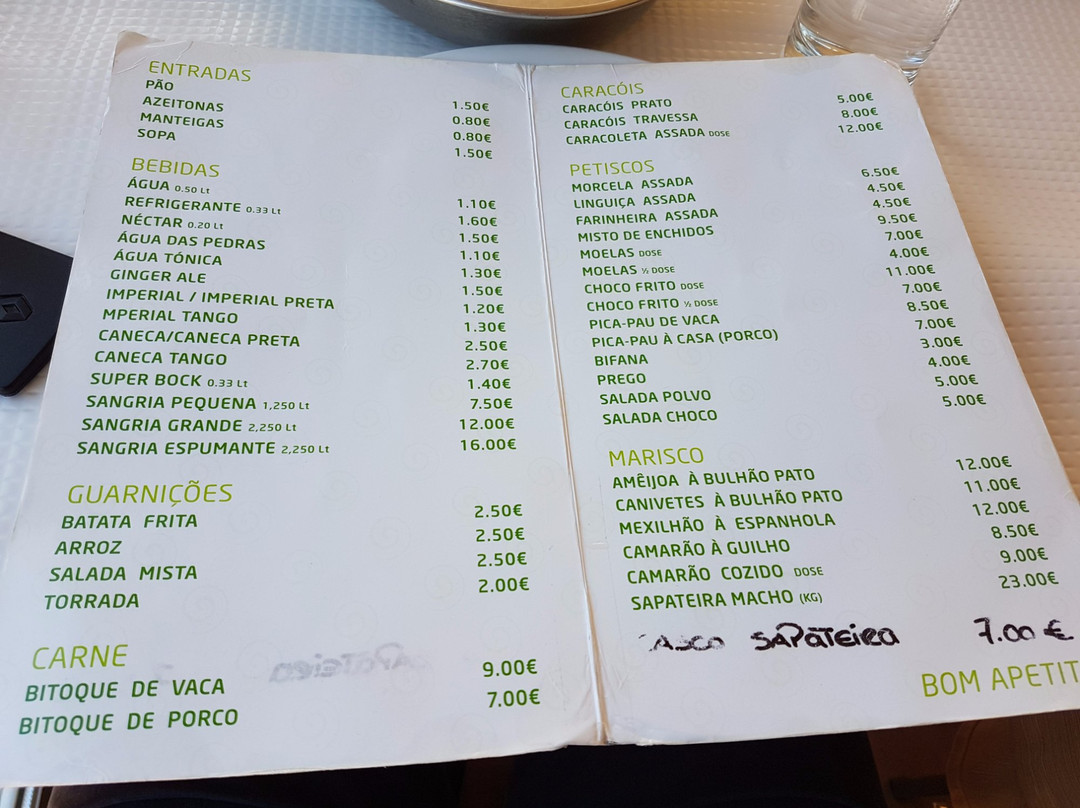 ENTRADAS
PÃO 1.50€
AZEITONAS 0.80€
MANTEIGAS 0.80€
SOPA 1.50€
BEBIDAS
ÁGUA 0.50 Lt 1.10€
REFRIGERANTE 0.33 Lt 1.60€
NÉCTAR 0.20 Lt 1.50€
ÁGUA DAS PEDRAS 1.10€
ÁGUA TÓNICA 1.30€
GINGER ALE 1.50€
IMPERIAL / IMPERIAL PRETA 1.20€
MPERIAL TANGO 1.30€
CANECA/CANECA PRETA 2.50€
CANECA TANGO 2.70€
SUPER BOCK 0.33 Lt 1.40€
SANGRIA PEQUENA 1,250 Lt 7.50€
SANGRIA GRANDE 2,250 Lt 12.00€
SANGRIA ESPUMANTE 2,250 Lt 16.00€
GUARNIÇÕES
BATATA FRITA 2.50€
ARROZ 2.50€
SALADA MISTA 2.50€
TORRADA 2.00€
CARNE
BITOQUE DE VACA 9.00€
BITOQUE DE PORCO 7.00€
CARACÓIS
CARACÓIS PRATO 5.00€
CARACÓIS TRAVESSA 8.00€
CARACOLETA ASSADA DOSE 12.00€
PETISCOS
MORCELA ASSADA 6.50€
LINGUIÇA ASSADA 4.50€
FARINHEIRA ASSADA 4.50€
MISTO DE ENCHIDOS 9.50€
MOELAS DOSE 7.00€
MOELAS ½ DOSE 4.00€
CHOCO FRITO DOSE 11.00€
CHOCO FRITO ½ DOSE 7.00€
PICA-PAU DE VACA 8.50€
PICA-PAU À CASA (PORCO) 7.00€
BIFANA 3.00€
PREGO 4.00€
SALADA POLVO 5.00€
SALADA CHOCO 5.00€
MARISCO
AMÊIJOA À BULHÃO PATO 12.00€
CANIVETES À BULHÃO PATO 11.00€
MEXILHÃO À ESPANHOLA 12.00€
CAMARÃO À GUILHO 8.50€
CAMARÃO COZIDO DOSE 9.00€
SAPATEIRA MACHO (KG) 23.00€
ASCO SAPATEIRA 7.00 €
BOM APETIT